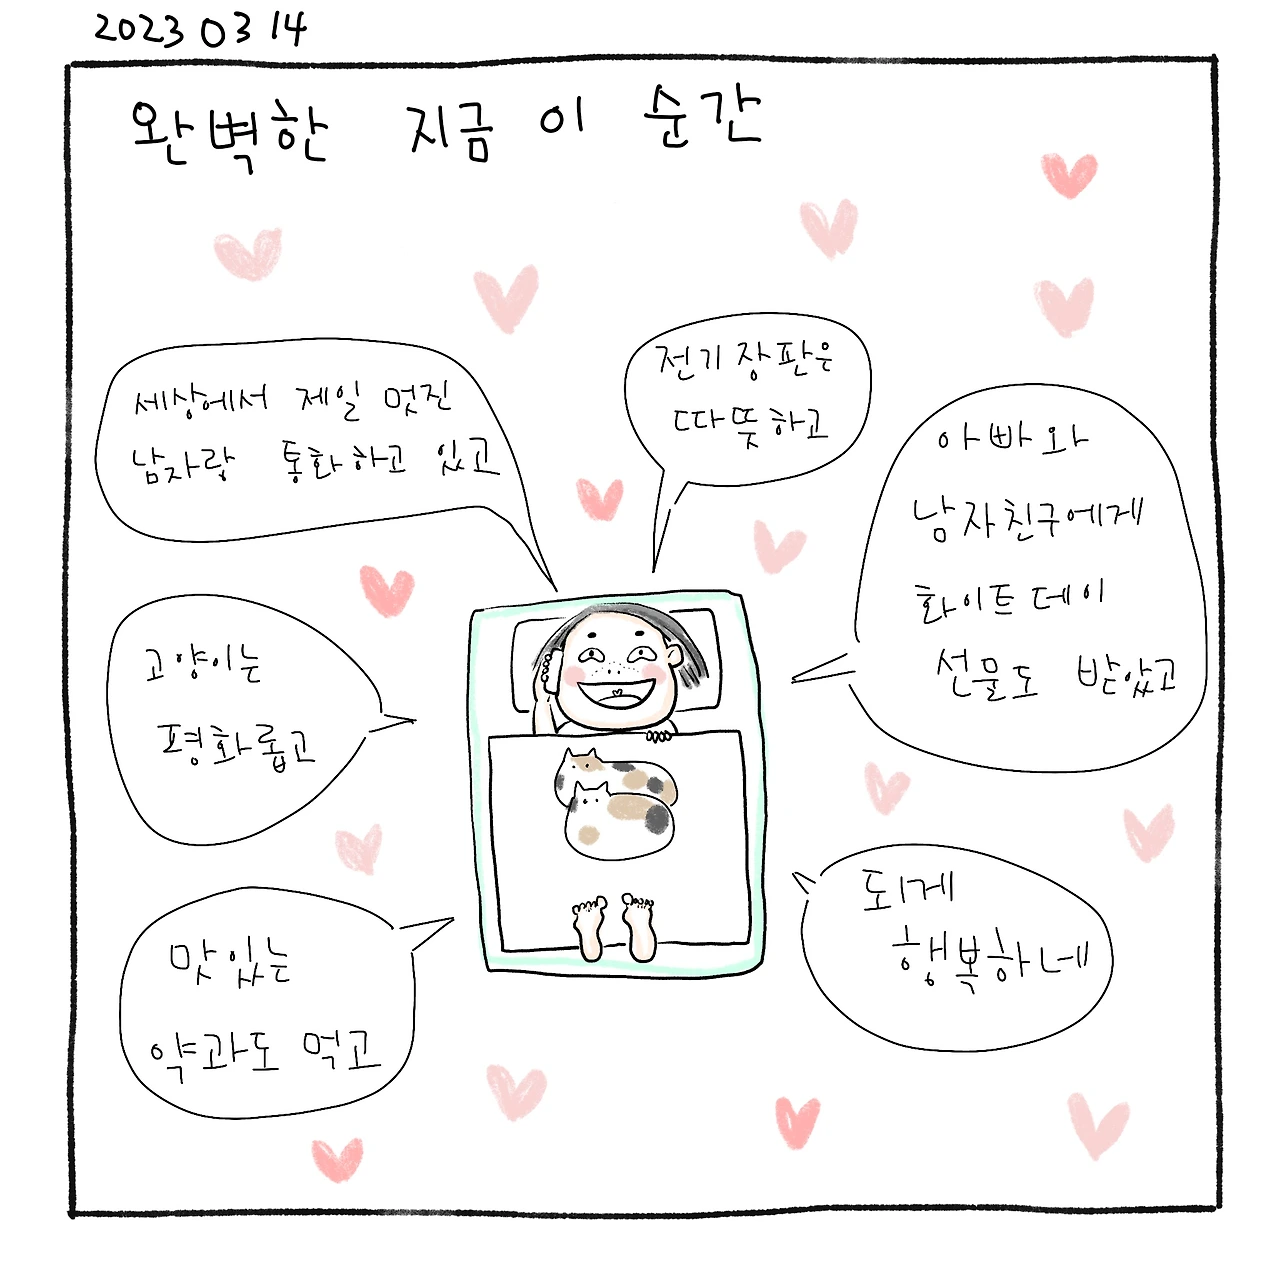 2023 03 14
완벽한 지금 이 순간
세상에서 제일 멋진
남자랑 통화하고 있고
전기장판은
따뜻하고
아빠와
남자친구에게
화이트데이
선물도 받았고
고양이는
평화롭고
맛있는
약과도 먹고
되게
행복하네